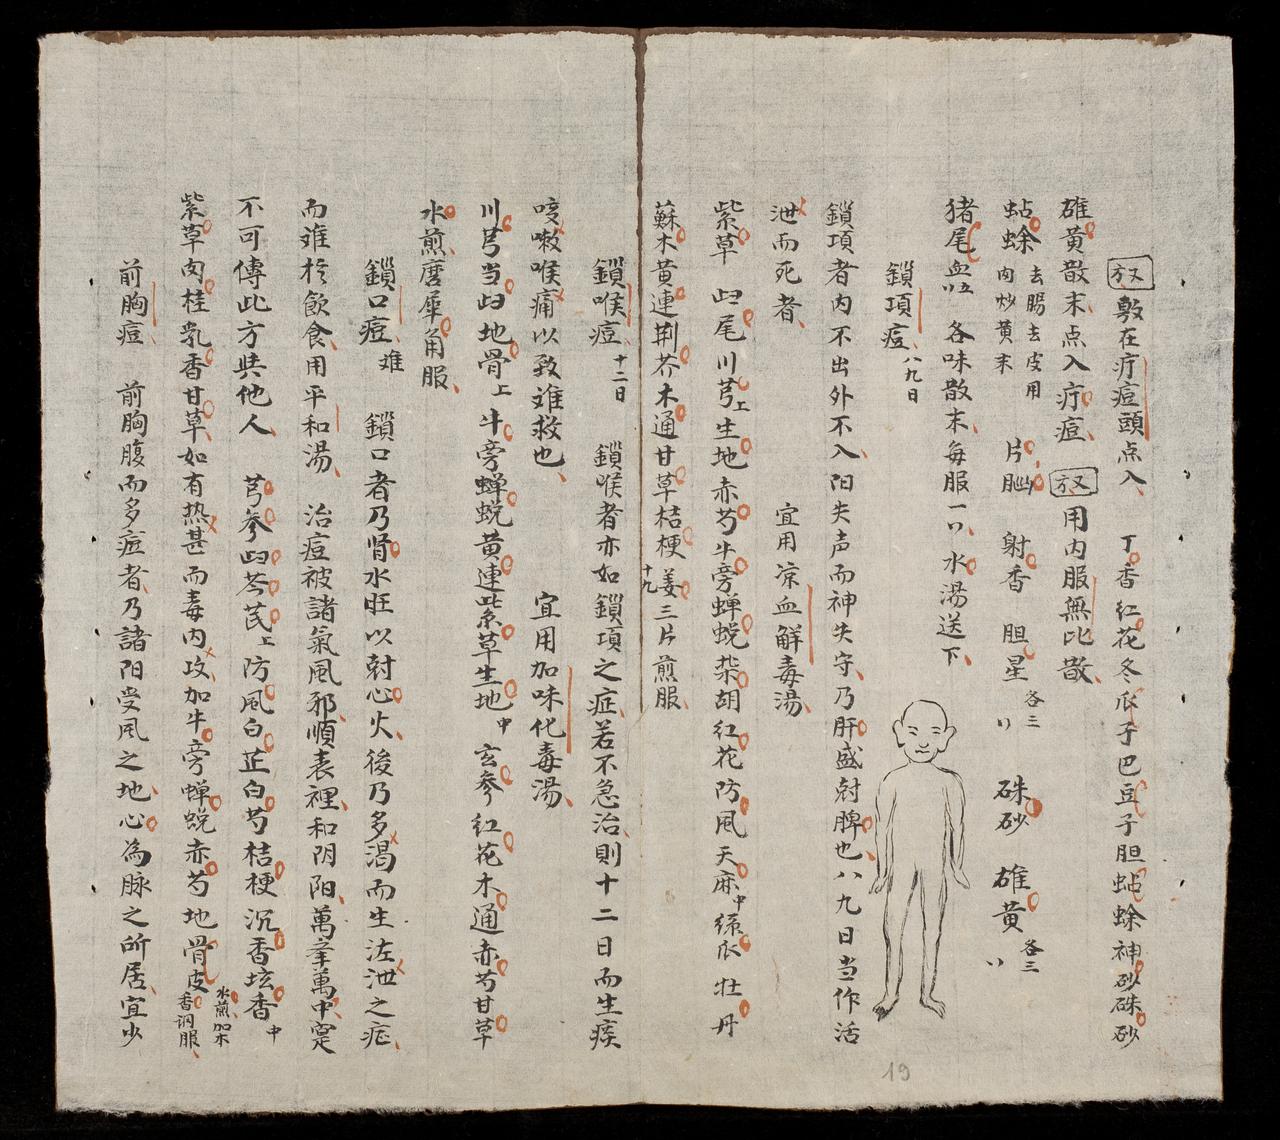 敷在疔痘頭点入 丁香紅花冬瓜子巴豆子胆蛅蜍神砂硃砂
雄黄散末点入疔痘 用内服無比散
蛅蜍 去腸去皮用肉炒黄末 片腦 射香 胆星 各三 硃砂 雄黄 各三
猪尾血 各味散末每服一 水湯送下
鎖項痘 八九日
鎖項者内不出外不入阳失声而神失守乃肝盛尅脾也八九日当作活
泄而死者 宜用凉血解毒湯
紫草 归尾川芎上生地赤芍牛旁蝉蜕柴胡红花防風天麻中絲瓜 牡丹
蘇木黄連荆芥木通甘草桔梗 姜三片煎服
鎖喉痘 十二日 鎖喉者亦如鎖項之症若不急治則十二日而生痰
咳嗽喉痛以致难救也 宜用加味化毒湯
川芎当归地骨上牛旁蝉蜕黄連紫草生地中玄参红花木通赤芍甘草
水煎磨犀角服
鎖口痘 难 鎖口者乃肾水旺以尅心火後乃多渴而生泄之症
而难於飲食用平和湯 治痘被諸氣風邪順表裡和阴阳萬辛萬中寔
不可傳此方與他人 芎参归芩芪上防風白芷白芍桔梗沉香坛香中
紫草肉桂乳香甘草如有热甚而毒内攻加牛旁蝉蜕赤芍地骨皮 水煎加木香涧服
前胸痘 前胸腹而多痘者乃諸阳受風之地心為脉之所居宜少
19